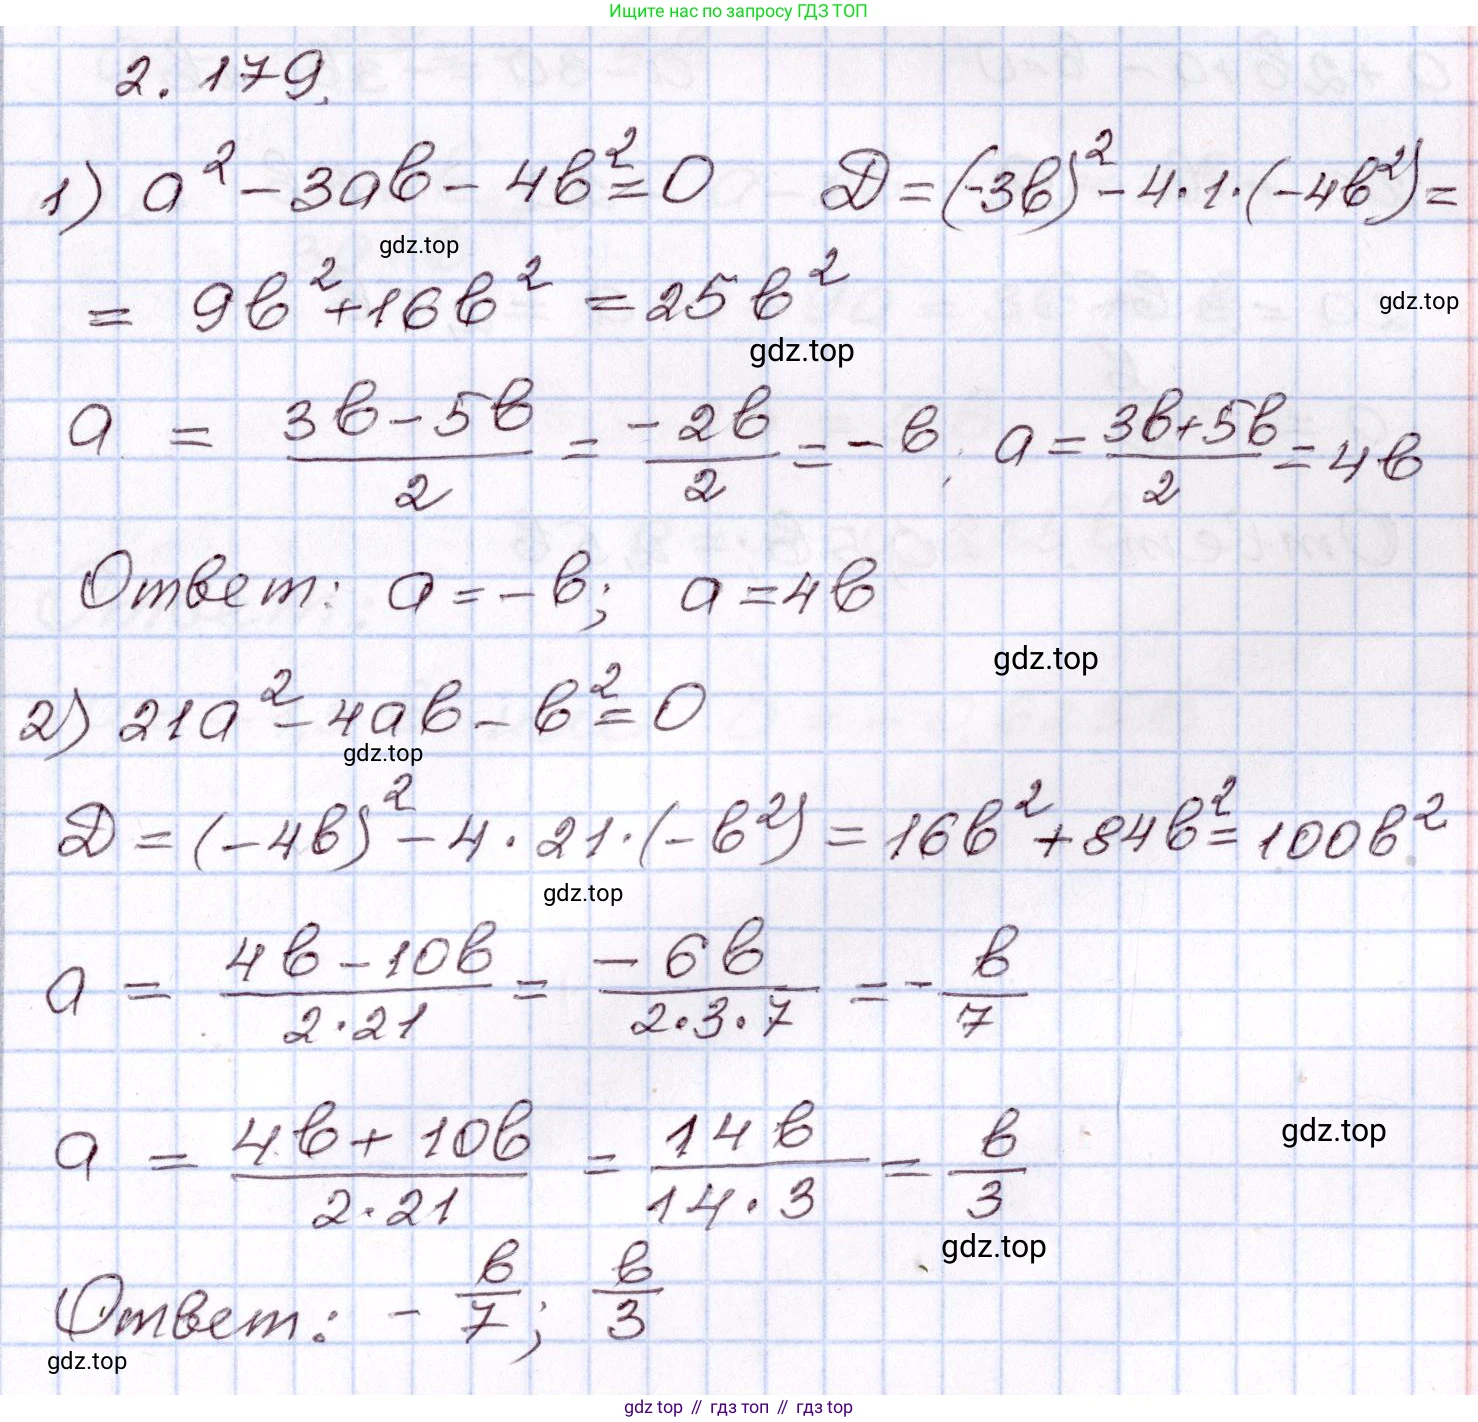 Ищите нас по запросу ГДЗ ТОП
2.179.
1) a² - 3ab - 4b² = 0   D = (-3b)² - 4·1·(-4b²) =
gdz.top
= 9b² + 16b² = 25b²
gdz.top
gdz.top
a = (3b - 5b)/2 = (-2b)/2 = -b, a = (3b + 5b)/2 = 4b
Ответ: a = -b; a = 4b
gdz.top
2) 21a² - 4ab - b² = 0
gdz.top
D = (-4b)² - 4·21·(-b²) = 16b² + 84b² = 100b²
gdz.top
a = (4b - 10b)/(2·21) = (-6b)/(2·3·7) = -b/7
a = (4b + 10b)/(2·21) = 14b/(14·3) = b/3
gdz.top
gdz.top
Ответ: -b/7; b/3
gdz.top
gdz top // гдз топ // гдз top